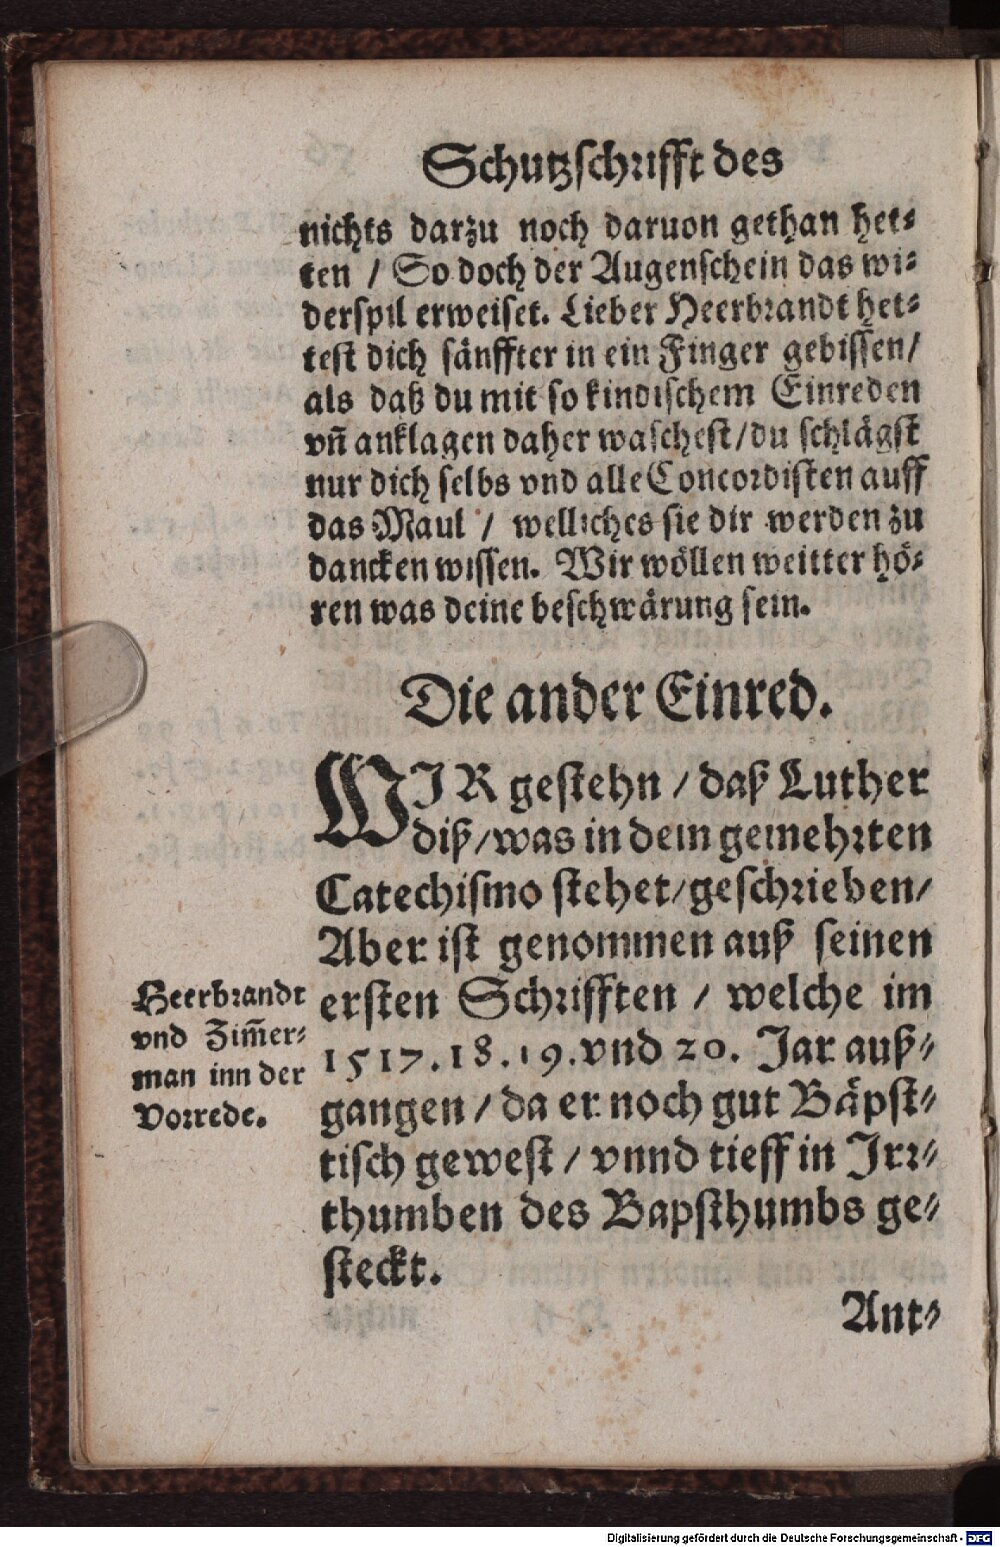 Schutzschrifft des
nichts darzu noch daruon gethan het⸗
ten / So doch der Augenschein das wi⸗
derspil erweiset. Lieber Heerbrandt het⸗
test dich sänffter in ein Finger gebissen/
als daß du mit so kindischem Einreden
vñ anklagen daher waschest/du schlägst
nur dich selbs vnd alle Concordisten auff
das Maul / welliches sie dir werden zu
dancken wissen. Wir wöllen weitter hö⸗
ren was deine beschwärung sein.
Die ander Einred.
WIR gestehn / daß Luther
diß/was in dem gemehrten
Catechismo stehet/geschrieben/
Aber ist genommen auß seinen
ersten Schrifften / welche im
1517.18.19.vnd 20. Jar auß⸗
gangen / da er noch gut Bäpst⸗
tisch gewest / vnnd tieff in Irr⸗
thumben des Bapsthumbs ge⸗
steckt.
Heerbrandt
vnd Zim̃er⸗
man inn der
Vorrede.
Ant⸗
Digitalisierung gefördert durch die Deutsche Forschungsgemeinschaft - DFG